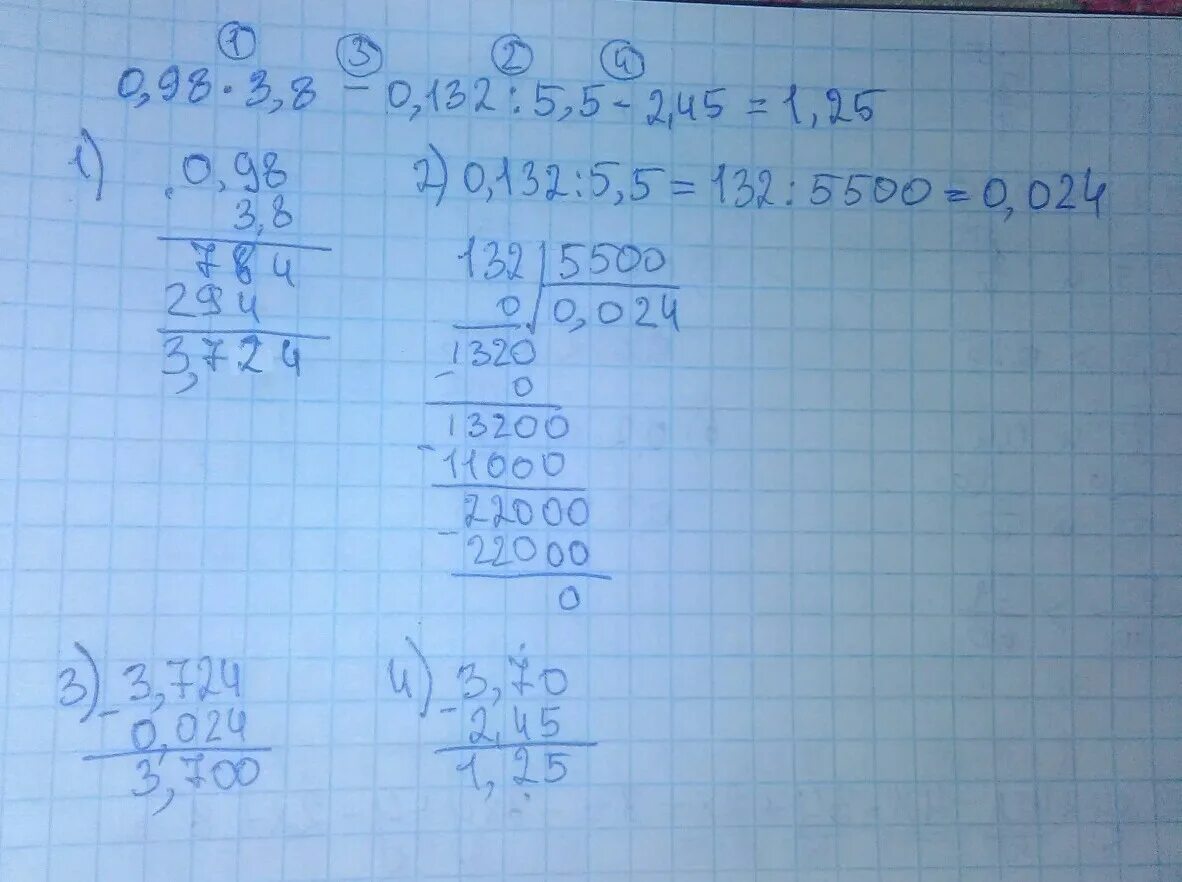 ① ③ ② ④
0,98 · 3,8 - 0,132 : 5,5 - 2,45 = 1,25
1) 0,98
3,8
784
294
3,724
2) 0,132 : 5,5 = 132 : 5500 = 0,024
132 5500
0 0,024
1320
- 0
13200
- 11000
22000
- 22000
0
3) - 3,724
0,024
3,700
4) - 3,70
2,45
1,25